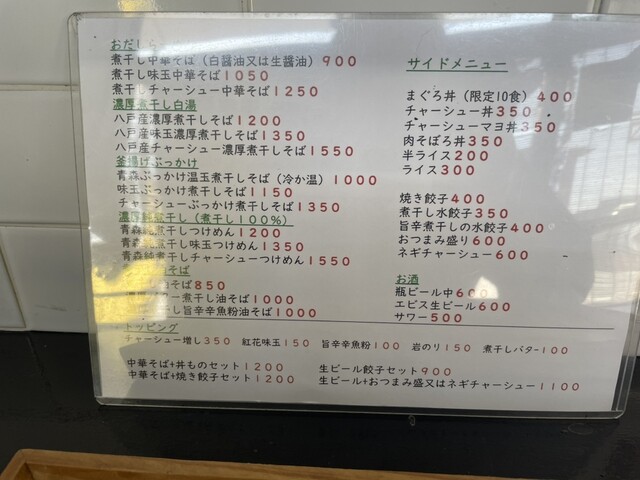 おだし
煮干し中華そば（白醤油又は生醤油）900
煮干し味玉中華そば1050
煮干しチャーシュー中華そば1250
濃厚煮干し白湯
八戸産濃厚煮干しそば1200
八戸産味玉濃厚煮干しそば1350
八戸産チャーシュー濃厚煮干しそば1550
釜揚げぶっかけ
青森ぶっかけ温玉煮干しそば（冷か温）1000
味玉ぶっかけ煮干しそば1150
チャーシューぶっかけ煮干しそば1350
濃厚純煮干し（煮干し100%）
青森純煮干しつけめん1200
青森純煮干し味玉つけめん1350
青森純煮干しチャーシューつけめん1550
そば
そば850
ー煮干し油そば1000
し旨辛辛魚粉油そば1000
サイドメニュー
まぐろ丼（限定10食）400
チャーシュー丼350
チャーシューマヨ丼350
肉そぼろ丼350
半ライス200
ライス300
焼き餃子400
煮干し水餃子350
旨辛煮干しの水餃子400
おつまみ盛り600
ネギチャーシュー600
お酒
瓶ビール中600
エビス生ビール600
サワー500
トッピング
チャーシュー増し350 紅花味玉150 旨辛辛魚粉100 岩のり150 煮干しバター100
中華そば+丼ものセット1200 生ビール餃子セット900
中華そば+焼き餃子セット1200 生ビール+おつまみ盛又はネギチャーシュー1100